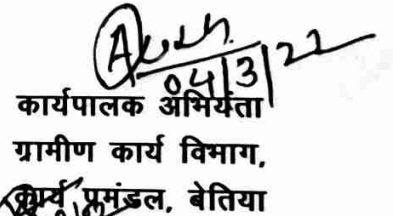 04/3/22
कार्यपालक अभियंता
ग्रामीण कार्य विभाग,
कार्य प्रमंडल, बेतिया